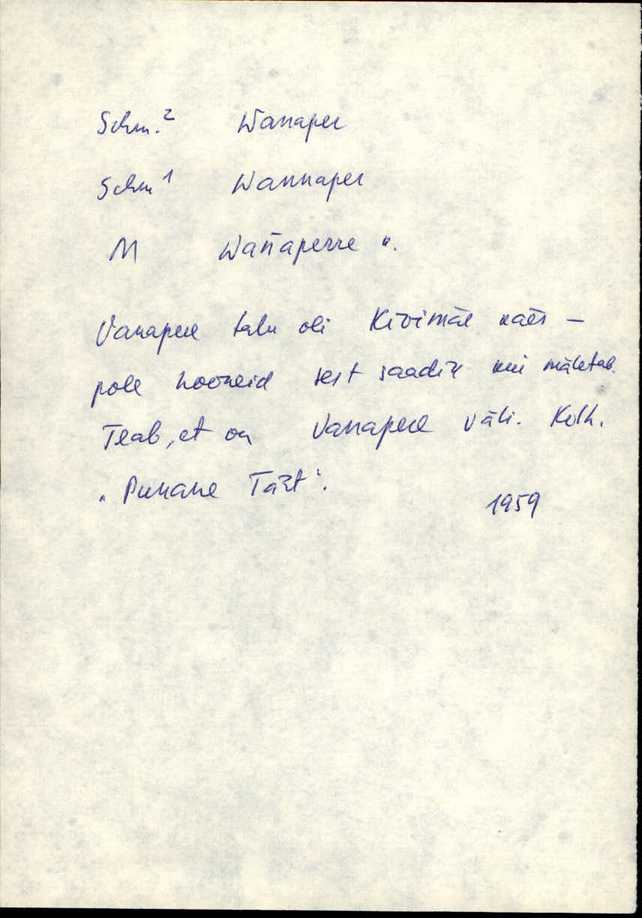 Schm.² Wanaper
Schm¹ Wannaper
M Wan̄aperre
Vanapere talu oli Kivimäe
pole hooneid sest saadik kui mäletab.
Teab, et on Vanapere väli. Kolh.
„Punane Täht".
1959